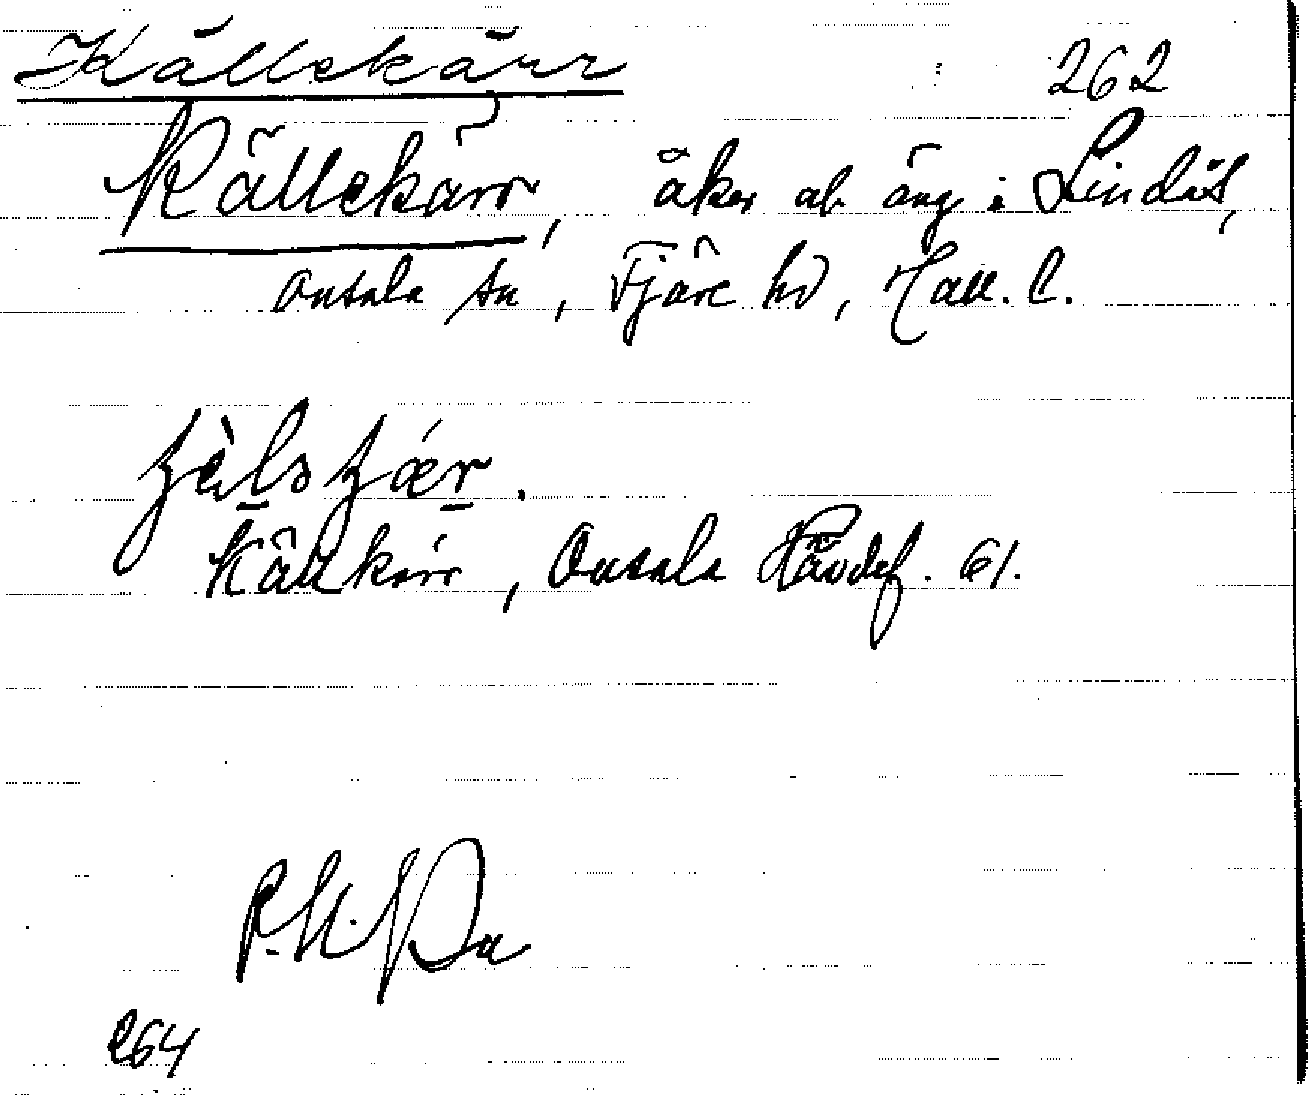 Källekärr 262
Källekärr, åker o. äng i Lindås,
Onsala sn, Fjäre hd, Hall. l.
Källkärr, Onsala Hävdef. 61.
264